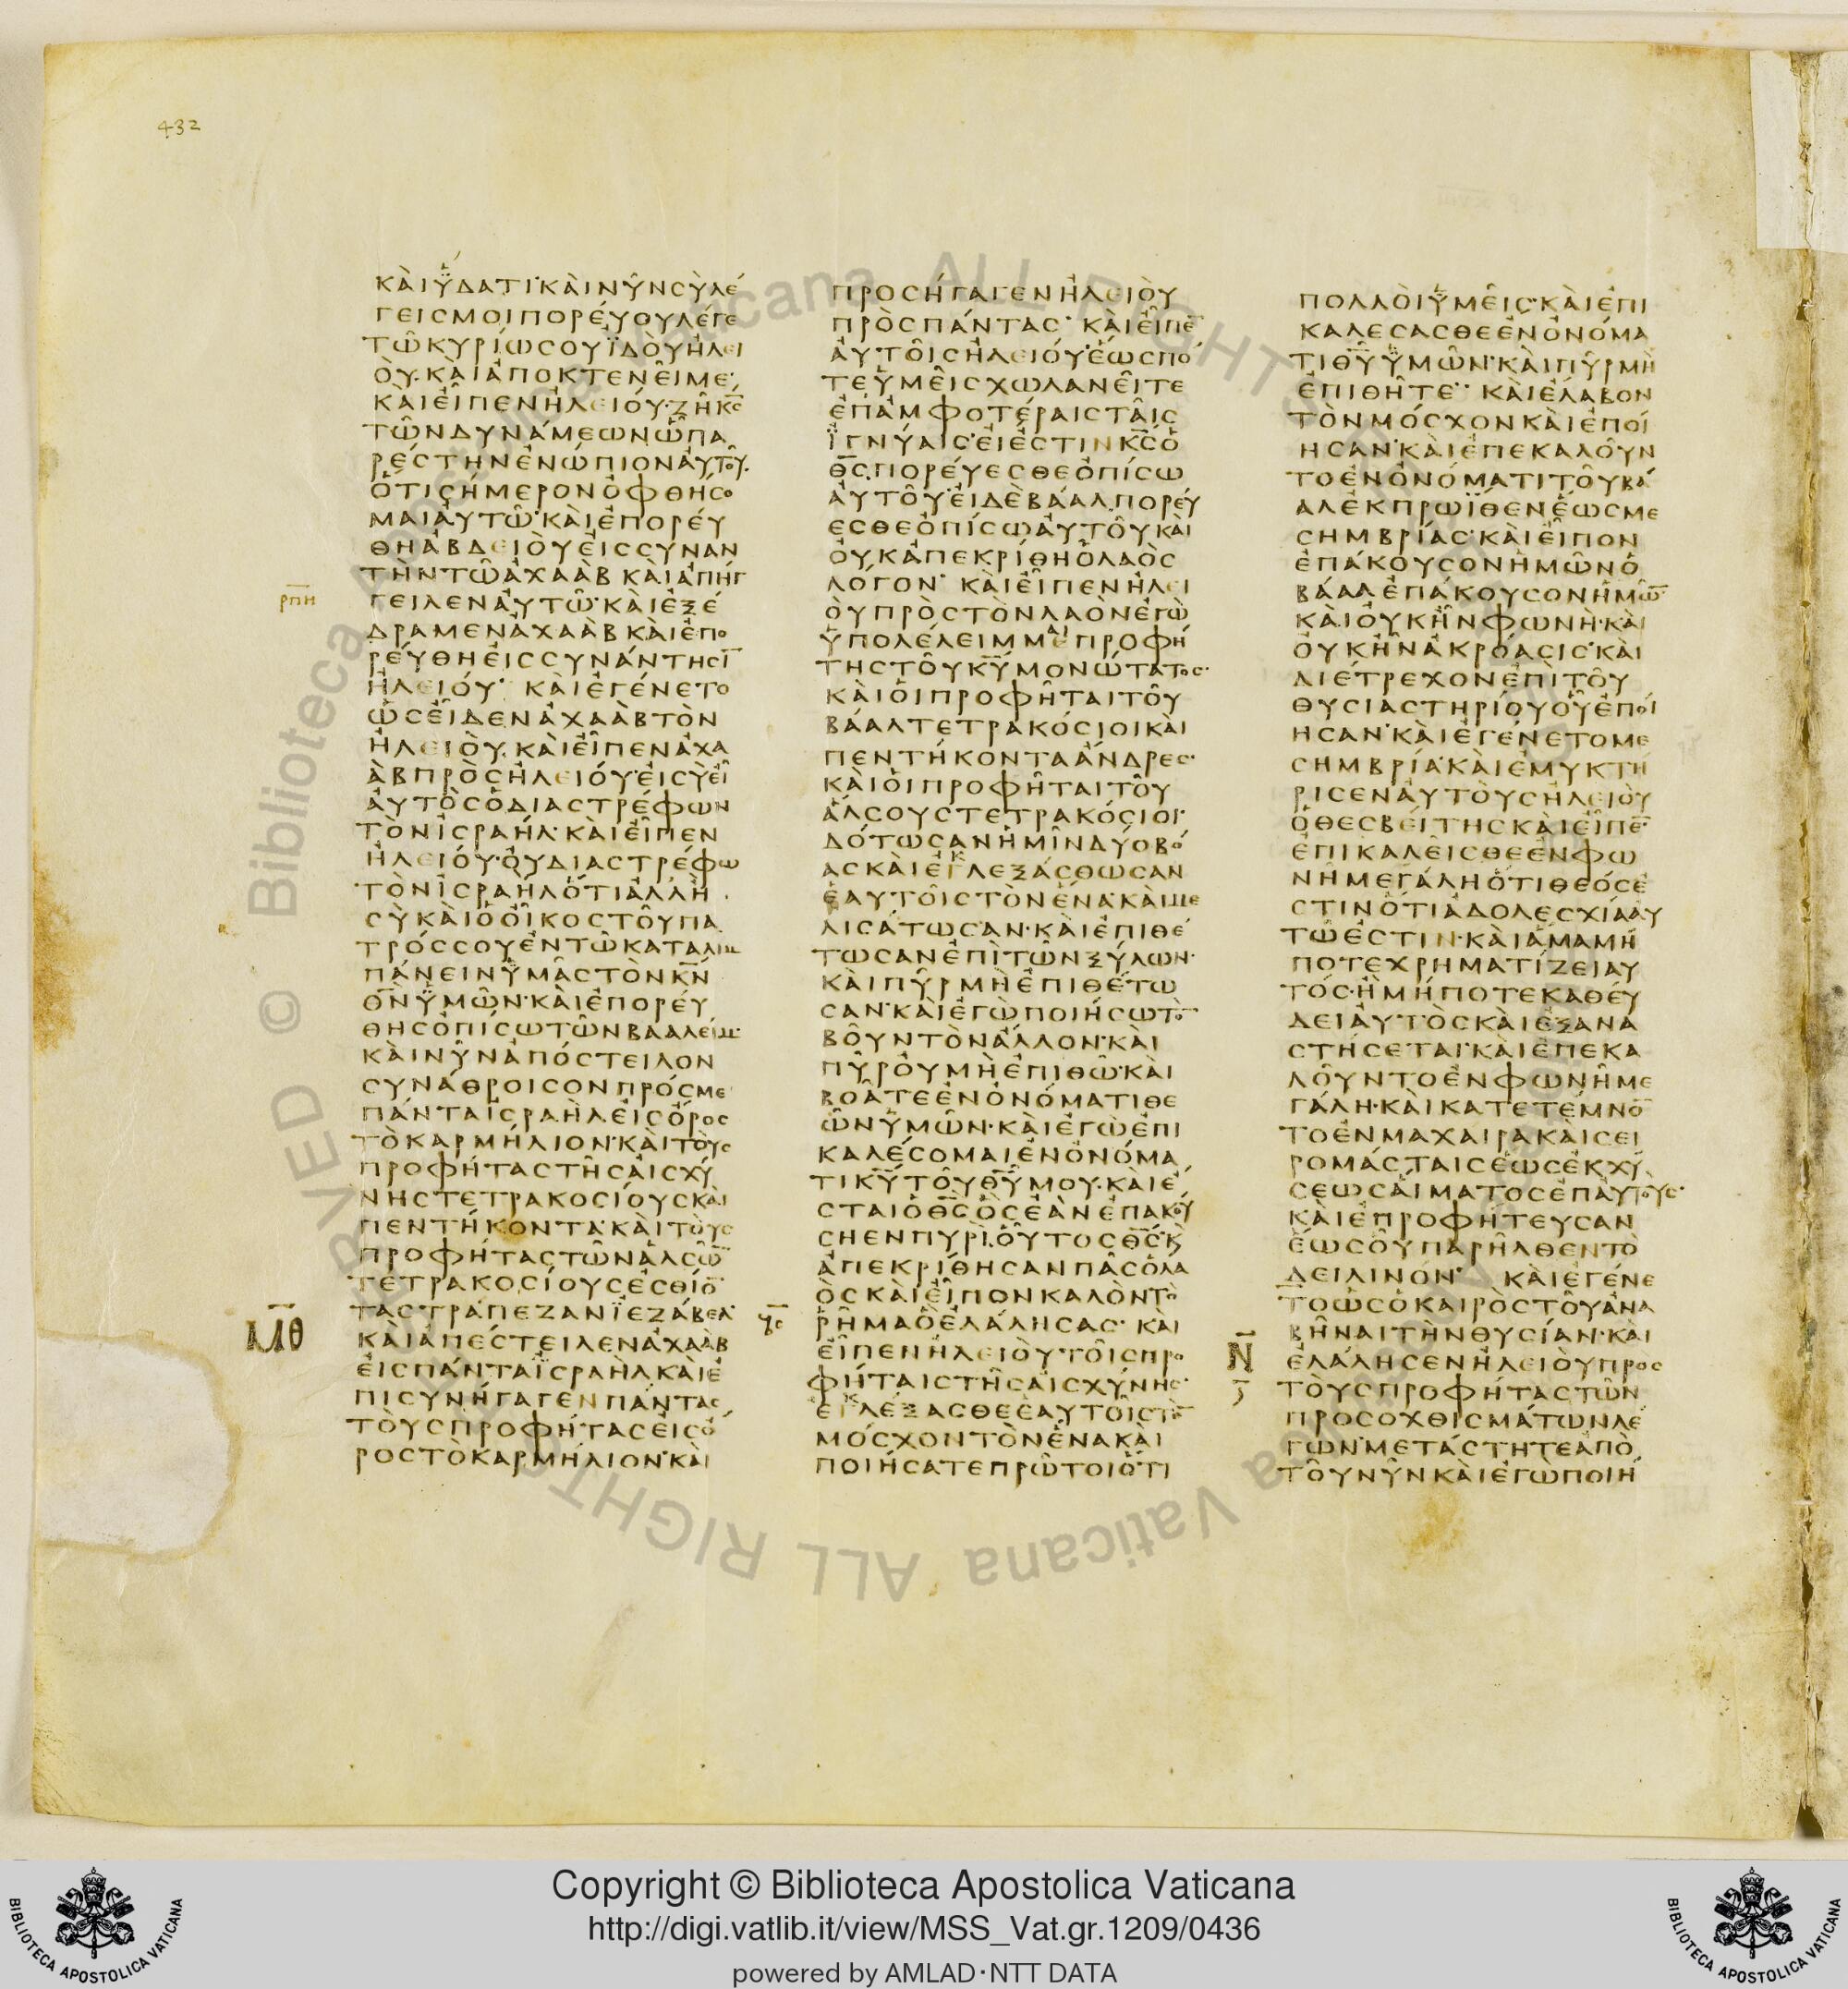 432
ΚΑΙΫΔΑΤΙΚΑΙΝΥΝΣΥΛΕ
ΓΕΙΣΜΟΙΠΟΡΕΥΟΥΛΕΓΕ
ΤΩΚΥΡΙΩΣΟΥΪΔΟΥΗΛΕΙ
ΟΥ·ΚΑΙΑΠΟΚΤΕΝΕΙΜΕ·
ΚΑΙΕΙΠΕΝΗΛΕΙΟΥ·ΖΗΚ̅Σ̅
ΤΩΝΔΥΝΑΜΕΩΝΩΠΑ
ΡΕΣΤΗΝΕΝΩΠΙΟΝΑΥΤΟΥ·
ΟΤΙΣΗΜΕΡΟΝΟΦΘΗΣΟ
ΜΑΙΑΥΤΩ·ΚΑΙΕΠΟΡΕΥ
ΘΗΑΒΔΕΙΟΥΕΙΣΣΥΝΑΝ
ΤΗΝΤΩΑΧΑΑΒ ΚΑΙΑΠΗΓ
ΡΠΗ
ΓΕΙΛΕΝΑΥΤΩ·ΚΑΙΕΞΕ
ΔΡΑΜΕΝΑΧΑΑΒΚΑΙΕΠΟ
ΡΕΥΘΗΕΙΣΣΥΝΑΝΤΗΣΙ̅
ΗΛΕΙΟΥ· ΚΑΙΕΓΕΝΕΤΟ
ΩΣΕΙΔΕΝΑΧΑΑΒΤΟΝ
ΗΛΕΙΟΥ·ΚΑΙΕΙΠΕΝΑΧΑ
ΑΒΠΡΟΣΗΛΕΙΟΥ·ΕΙΣΥΕΙ
ΑΥΤΟΣΟΔΙΑΣΤΡΕΦΩΝ
ΤΟΝΙΣΡΑΗΛ·ΚΑΙΕΙΠΕΝ
ΗΛΕΙΟΥ·ΟΥΔΙΑΣΤΡΕΦΩ
ΤΟΝΙΣΡΑΗΛΟΤΙΑΛΛΗ
ΣΥΚΑΙΟΟΙΚΟΣΤΟΥΠΑ
ΤΡΟΣΣΟΥΕΝΤΩΚΑΤΑΛΙΜ
ΠΑΝΕΙΝΫΜΑΣΤΟΝΚ̅Ν̅
Θ̅Ν̅ΫΜΩΝ·ΚΑΙΕΠΟΡΕΥ
ΘΗΣΟΠΙΣΩΤΩΝΒΑΑΛΕΙΜ·
ΚΑΙΝΥΝΑΠΟΣΤΕΙΛΟΝ
ΣΥΝΑΘΡΟΙΣΟΝΠΡΟΣΜΕ
ΠΑΝΤΑΙΣΡΑΗΛΕΙΣΟΡΟΣ
ΤΟΚΑΡΜΗΛΙΟΝ·ΚΑΙΤΟΥΣ
ΠΡΟΦΗΤΑΣΤΗΣΑΙΣΧΥ
ΝΗΣΤΕΤΡΑΚΟΣΙΟΥΣΚΑΙ
ΠΕΝΤΗΚΟΝΤΑ·ΚΑΙΤΟΥΣ
ΠΡΟΦΗΤΑΣΤΩΝΑΛΣΩ̅
ΤΕΤΡΑΚΟΣΙΟΥΣΕΣΘΙΟ̅
ΤΑΣΤΡΑΠΕΖΑΝΪΕΖΑΒΕΛ·
ΜΘ
ΚΑΙΑΠΕΣΤΕΙΛΕΝΑΧΑΑΒ
ΕΙΣΠΑΝΤΑΪΣΡΑΗΛ·ΚΑΙΕ
ΠΙΣΥΝΗΓΑΓΕΝΠΑΝΤΑΣ
ΤΟΥΣΠΡΟΦΗΤΑΣΕΙΣΟ
ΡΟΣΤΟΚΑΡΜΗΛΙΟΝ·ΚΑΙ
ΠΡΟΣΗΓΑΓΕΝΗΛΕΙΟΥ
ΠΡΟΣΠΑΝΤΑΣ· ΚΑΙΕΙΠΕ̅
ΑΥΤΟΙΣΗΛΕΙΟΥ·ΕΩΣΠΟ
ΤΕΫΜΕΙΣΧΩΛΑΝΕΙΤΕ
ΕΠΑΜΦΟΤΕΡΑΙΣΤΑΙΣ
ΪΓΝΥΑΙΣ·ΕΙΕΣΤΙΝΚ̅Σ̅Ο
Θ̅Σ̅ΠΟΡΕΥΕΣΘΕΟΠΙΣΩ
ΑΥΤΟΥ·ΕΙΔΕΒΑΑΛΠΟΡΕΥ
ΕΣΘΕΟΠΙΣΩΑΥΤΟΥΚΑΙ
ΟΥΚΑΠΕΚΡΙΘΗΟΛΑΟΣ
ΛΟΓΟΝ· ΚΑΙΕΙΠΕΝΗΛΕΙ
ΟΥΠΡΟΣΤΟΝΛΑΟΝΕΓΩ
ΫΠΟΛΕΛΕΙΜΜΕΠΡΟΦΗ
ΤΗΣΤΟΥΚ̅Υ̅ΜΟΝΩΤΑΤΟΣ·
ΚΑΙΟΙΠΡΟΦΗΤΑΙΤΟΥ
ΒΑΑΛΤΕΤΡΑΚΟΣΙΟΙΚΑΙ
ΠΕΝΤΗΚΟΝΤΑΑΝΔΡΕΣ·
ΚΑΙΟΙΠΡΟΦΗΤΑΙΤΟΥ
ΑΛΣΟΥΣΤΕΤΡΑΚΟΣΙΟΙ·
ΔΟΤΩΣΑΝΗΜΙΝΔΥΟΒΟ
ΑΣΚΑΙΕΓΛΕΞΑΣΘΩΣΑΝ
ΕΑΥΤΟΙΣΤΟΝΕΝΑ·ΚΑΙΜΕ
ΛΙΣΑΤΩΣΑΝ·ΚΑΙΕΠΙΘΕ
ΤΩΣΑΝΕΠΙΤΩΝΞΥΛΩΝ·
ΚΑΙΠΥΡΜΗΕΠΙΘΕΤΩ
ΣΑΝ·ΚΑΙΕΓΩΠΟΙΗΣΩΤΟ̅
ΒΟΥΝΤΟΝΑΛΛΟΝ·ΚΑΙ
ΠΥΡΟΥΜΗΕΠΙΘΩ·ΚΑΙ
ΒΟΑΤΕΕΝΟΝΟΜΑΤΙΘΕ
ΩΝΫΜΩΝ·ΚΑΙΕΓΩΕΠΙ
ΚΑΛΕΣΟΜΑΙΕΝΟΝΟΜΑ
ΤΙΚ̅Υ̅ΤΟΥΘ̅Υ̅ΜΟΥ·ΚΑΙΕ
ΣΤΑΙΟΘ̅Σ̅ΟΣΕΑΝΕΠΑΚΟΥ
ΣΗΕΝΠΥΡΙ·ΟΥΤΟΣΘ̅Σ̅·Κ
ΑΠΕΚΡΙΘΗΣΑΝΠΑΣΟΛΑ
ΟΣΚΑΙΕΙΠΟΝΚΑΛΟΝΤΟ
ΡΗΜΑΟΕΛΑΛΗΣΑΣ· ΚΑΙ
ΕΙΠΕΝΗΛΕΙΟΥ·ΤΟΙΣΠΡΟ
ΦΗΤΑΙΣΤΗΣΑΙΣΧΥΝΗΣ·
ΕΓΛΕΞΑΣΘΕΕΑΥΤΟΙΣΤΟ̅
ΜΟΣΧΟΝΤΟΝΕΝΑΚΑΙ
ΠΟΙΗΣΑΤΕΠΡΩΤΟΙΟΤΙ
ΠΟΛΛΟΙΫΜΕΙΣ·ΚΑΙΕΠΙ
ΚΑΛΕΣΑΣΘΕΕΝΟΝΟΜΑ
ΤΙΘ̅Υ̅ΫΜΩΝ·ΚΑΙΠΥΡΜΗ
ΕΠΙΘΗΤΕ· ΚΑΙΕΛΑΒΟΝ
ΤΟΝΜΟΣΧΟΝΚΑΙΕΠΟΙ
ΗΣΑΝ·ΚΑΙΕΠΕΚΑΛΟΥΝ
ΤΟΕΝΟΝΟΜΑΤΙΤΟΥΒΑ
ΑΛΕΚΠΡΩΪΘΕΝΕΩΣΜΕ
ΣΗΜΒΡΙΑΣ·ΚΑΙΕΙΠΟΝ
ΕΠΑΚΟΥΣΟΝΗΜΩΝΟ
ΒΑΑΛΕΠΑΚΟΥΣΟΝΗΜΩ̅·
ΚΑΙΟΥΚΗΝΦΩΝΗ·ΚΑΙ
ΟΥΚΗΝΑΚΡΟΑΣΙΣ·ΚΑΙ
ΔΙΕΤΡΕΧΟΝΕΠΙΤΟΥ
ΘΥΣΙΑΣΤΗΡΙΟΥΟΥΕΠΟΙ
ΗΣΑΝ·ΚΑΙΕΓΕΝΕΤΟΜΕ
ΣΗΜΒΡΙΑ·ΚΑΙΕΜΥΚΤΗ
ΡΙΣΕΝΑΥΤΟΥΣΗΛΕΙΟΥ
ΟΘΕΣΒΕΙΤΗΣΚΑΙΕΙΠΕ̅·
ΕΠΙΚΑΛΕΙΣΘΕΕΝΦΩ
ΝΗΜΕΓΑΛΗΟΤΙΘΕΟΣΕ
ΣΤΙΝΟΤΙΑΔΟΛΕΣΧΙΑΑΥ
ΤΩΕΣΤΙΝ·ΚΑΙΑΜΑΜΗ
ΠΟΤΕΧΡΗΜΑΤΙΖΕΙΑΥ
ΤΟΣ·ΗΜΗΠΟΤΕΚΑΘΕΥ
ΔΕΙΑΥΤΟΣΚΑΙΕΞΑΝΑ
ΣΤΗΣΕΤΑΙ·ΚΑΙΕΠΕΚΑ
ΛΟΥΝΤΟΕΝΦΩΝΗΜΕ
ΓΑΛΗ·ΚΑΙΚΑΤΕΤΕΜΝΟ̅
ΤΟΕΝΜΑΧΑΙΡΑΚΑΙΣΕΙ
ΡΟΜΑΣΤΑΙΣΕΩΣΕΚΧΥ
ΣΕΩΣΑΙΜΑΤΟΣΕΠΑΥΤΟΥΣ·
ΚΑΙΕΠΡΟΦΗΤΕΥΣΑΝ
ΕΩΣΟΥΠΑΡΗΛΘΕΝΤΟ
ΔΕΙΛΙΝΟΝ· ΚΑΙΕΓΕΝΕ
ΤΟΩΣΟΚΑΙΡΟΣΤΟΥΑΝΑ
ΒΗΝΑΙΤΗΝΘΥΣΙΑΝ·ΚΑΙ
Ν
ΕΛΑΛΗΣΕΝΗΛΕΙΟΥΠΡΟΣ
ΤΟΥΣΠΡΟΦΗΤΑΣΤΩΝ
ΠΡΟΣΟΧΘΙΣΜΑΤΩΝΛΕ
ΓΩΝ·ΜΕΤΑΣΤΗΤΕΑΠΟ
ΤΟΥΝΥΝΚΑΙΕΓΩΠΟΙΗ
Copyright © Biblioteca Apostolica Vaticana
http://digi.vatlib.it/view/MSS_Vat.gr.1209/0436
powered by AMLAD·NTT DATA
BIBLIOTECA APOSTOLICA VATICANA
BIBLIOTECA APOSTOLICA VATICANA